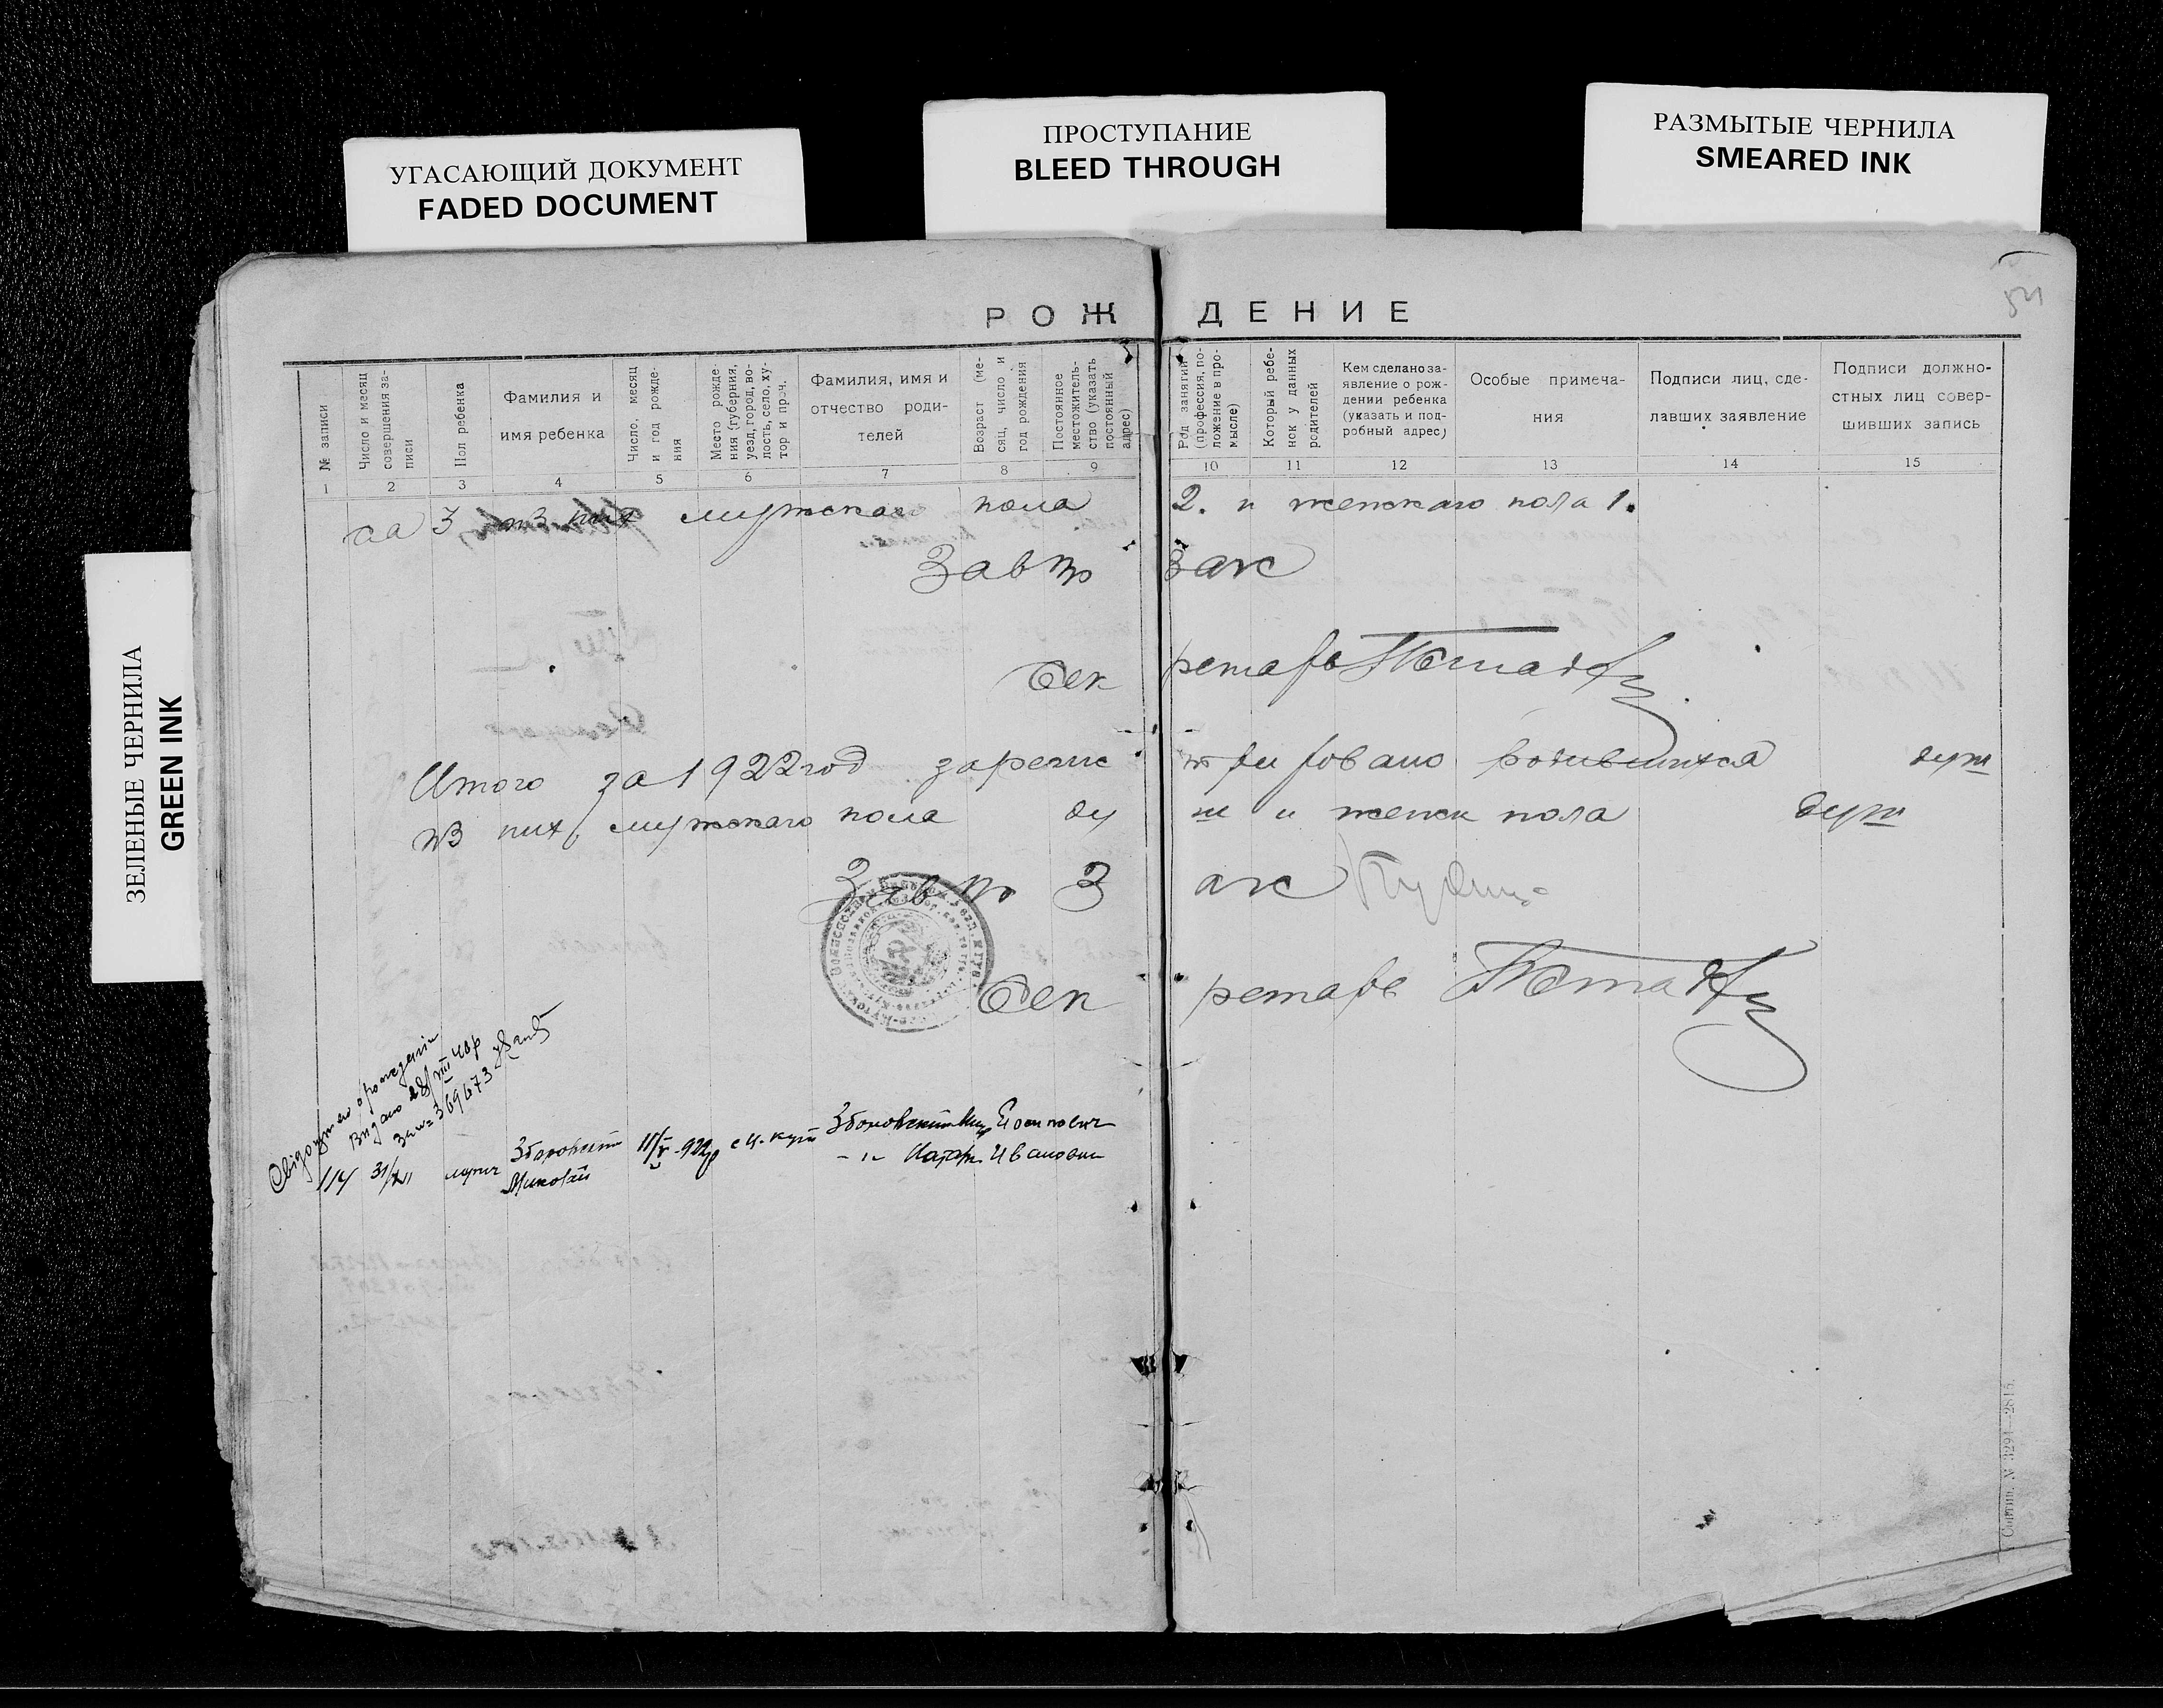 УГАСАЮЩИЙ ДОКУМЕНТ
FADED DOCUMENT
ПРОСТУПАНИЕ
BLEED THROUGH
РАЗМЫТЫЕ ЧЕРНИЛА
SMEARED INK
ЗЕЛЕНЫЕ ЧЕРНИЛА
GREEN INK
РОЖДЕНИЕ
№ записи
Число и месяц
совершения за-
писи
Пол ребенка
Фамилия и
имя ребенка
Число, месяц
и год рожде-
ния
Место рожде-
ния (губерния,
уезд, город, во-
лость, село, ху-
тор и проч.
Фамилия, имя и
отчество роди-
телей
Возраст (ме-
сяц, число и
год рождения
Постоянное
местожитель-
ство (указать
постоянный
адрес)
Род занятий
(профессия, по-
ложение в про-
мысле)
Который ребе-
нок у данных
родителей
Кем сделано за-
явление о рож-
дении ребенка
(указать и под-
робный адрес)
Особые примеча-
ния
Подписи лиц, сде-
лавших заявление
Подписи должно-
стных лиц совер-
шивших запись
1 2 3 4 5 6 7 8 9 10 11 12 13 14 15
3 из них мужского пола 2. и женскаго пола 1.
Зав по Загс
Секретарь
Итого за 1922 год зарегистрировано родившихся душ
из них мужскаго пола душ и женск пола душ
Зав по Загс
Секретарь
Видано 28/VIII 48р
369673
114 31/XII Зборовский 11/V-922р Зборовский Иосипович
Николай - " - Ивановна
Сытин. № 3291—2815.